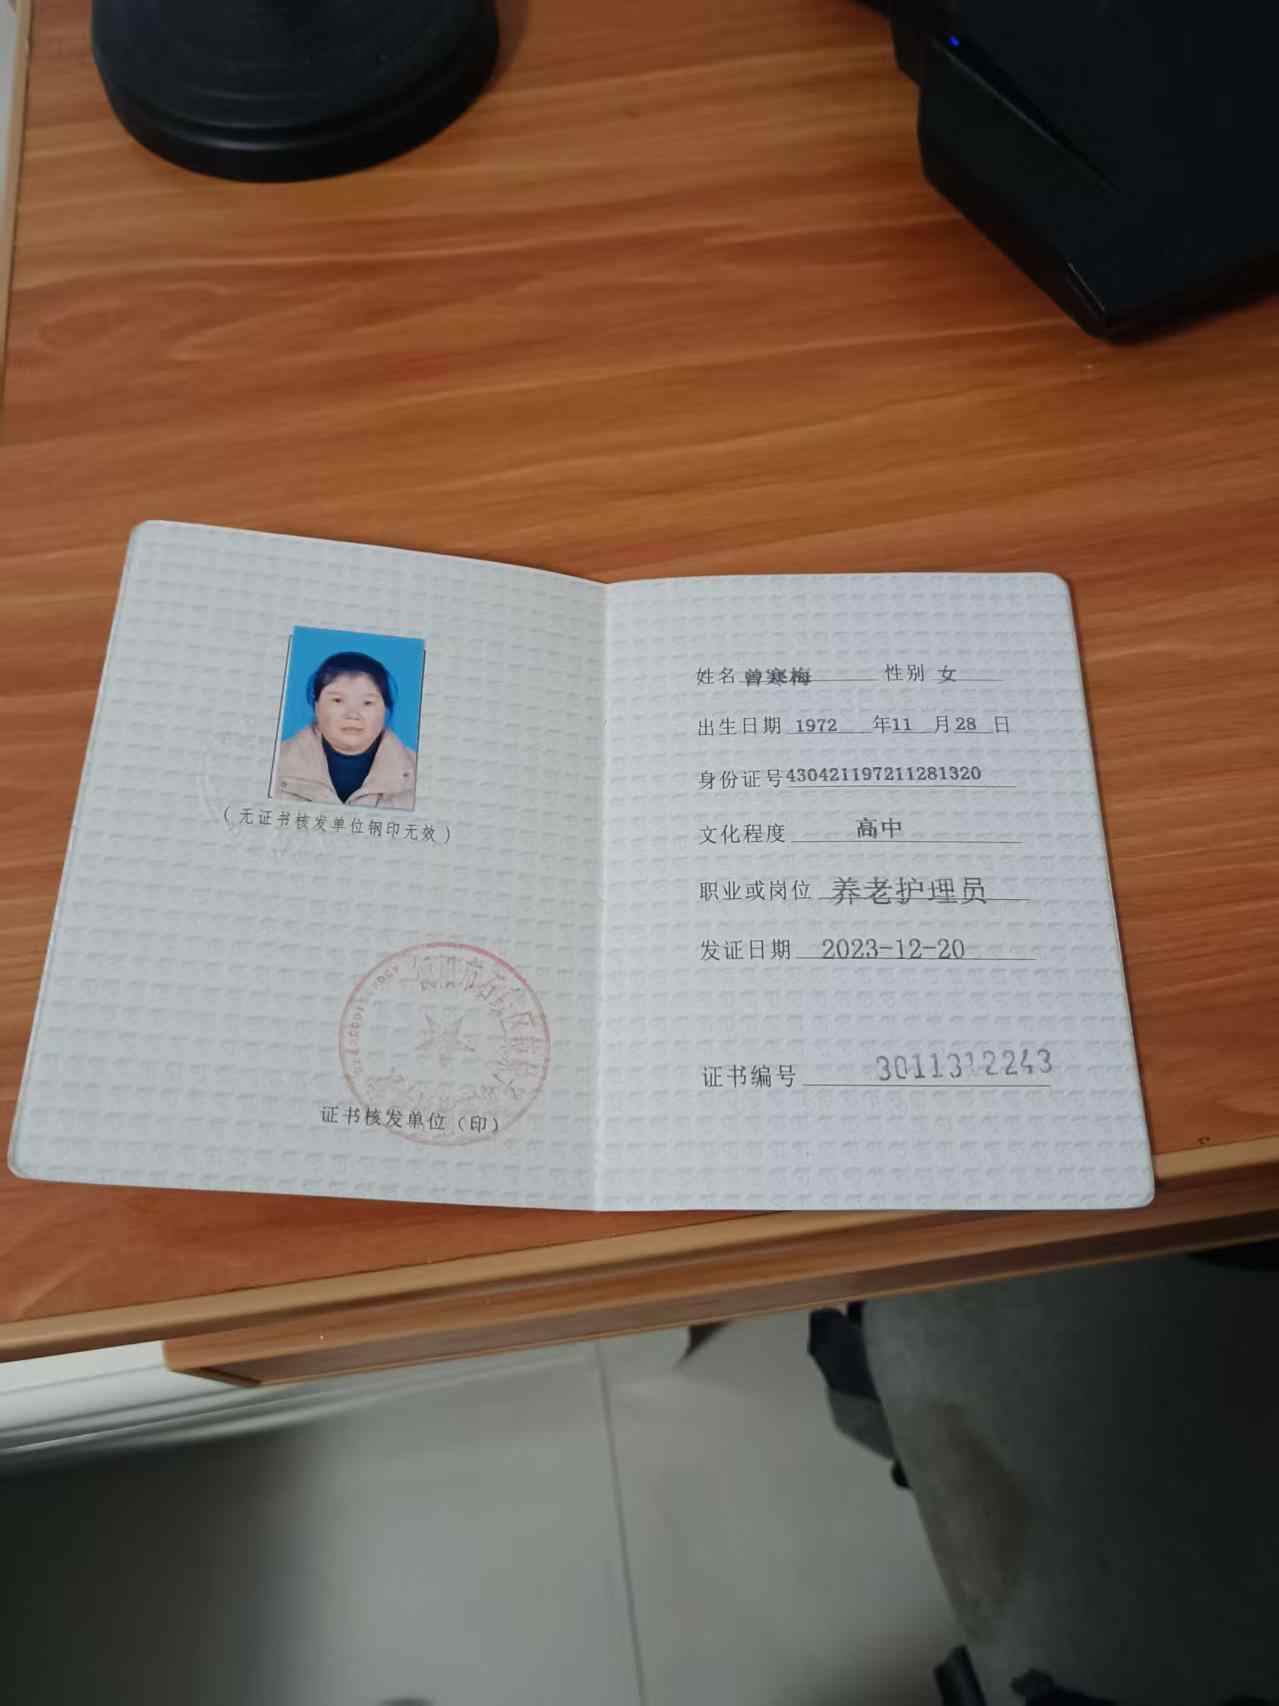 （无证书核发单位钢印无效）
证书核发单位（印）
姓名 曾寒梅 性别 女
出生日期 1972 年 11 月 28 日
身份证号 430421197211281320
文化程度 高中
职业或岗位 养老护理员
发证日期 2023-12-20
证书编号 3011312243